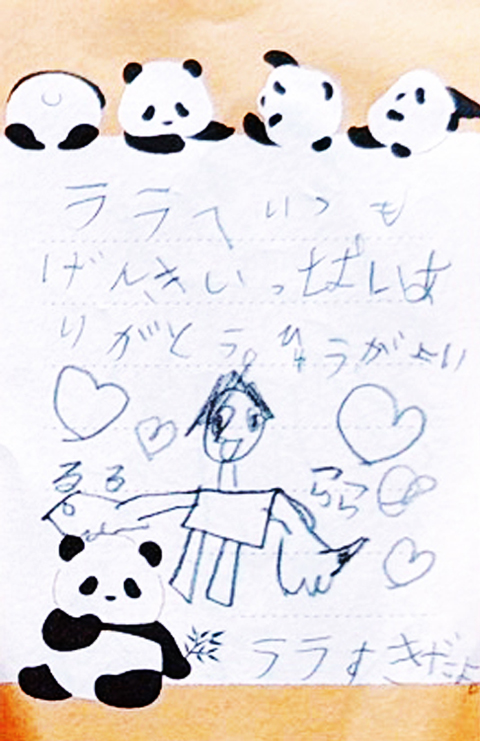 ララへいつも
げんきいっぱいあ
りがとう。ひゅうがより
るる
らら
ララすきだよ